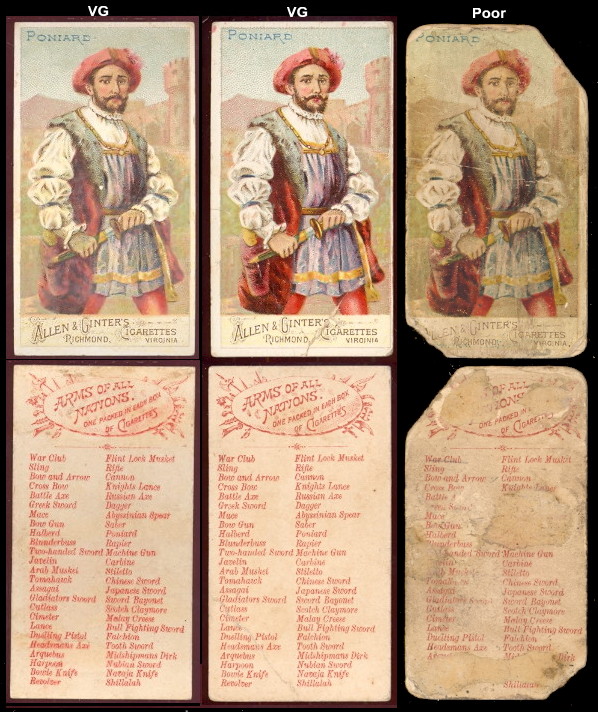 VG
VG
Poor
PONIARD
ALLEN & GINTER'S CIGARETTES
RICHMOND, VIRGINIA
PONIARD
ALLEN & GINTER'S CIGARETTES
RICHMOND, VIRGINIA
PONIARD
& GINTER'S CIGARETTES
RICHMOND, VIRGINIA.
ARMS OF ALL
NATIONS.
ONE PACKED IN EACH BOX
OF CIGARETTES
War Club Flint Lock Musket
Sling Rifle
Bow and Arrow Cannon
Cross Bow Knights Lance
Battle Axe Russian Axe
Greek Sword Dagger
Mace Abyssinian Spear
Bow Gun Saber
Halberd Poniard
Blunderbuss Rapier
Two-handed Sword Machine Gun
Javelin Carbine
Arab Musket Stiletto
Tomahawk Chinese Sword
Assagai Japanese Sword
Gladiators Sword Sword Bayonet
Cutlass Scotch Claymore
Cimeter Malay Creese
Lance Bull Fighting Sword
Duelling Pistol Falchion
Headsmans Axe Tooth Sword
Arquebus Midshipmans Dirk
Harpoon Nubian Sword
Bowie Knife Navaja Knife
Revolver Shillalah
ARMS OF ALL
NATIONS.
ONE PACKED IN EACH BOX
OF CIGARETTES
War Club Flint Lock Musket
Sling Rifle
Bow and Arrow Cannon
Cross Bow Knights Lance
Battle Axe Russian Axe
Greek Sword Dagger
Mace Abyssinian Spear
Bow Gun Saber
Halberd Poniard
Blunderbuss Rapier
Two-handed Sword Machine Gun
Javelin Carbine
Arab Musket Stiletto
Tomahawk Chinese Sword
Assagai Japanese Sword
Gladiators Sword Sword Bayonet
Cutlass Scotch Claymore
Cimeter Malay Creese
Lance Bull Fighting Sword
Duelling Pistol Falchion
Headsmans Axe Tooth Sword
Arquebus Midshipmans Dirk
Harpoon Nubian Sword
Bowie Knife Navaja Knife
Revolver Shillalah
OF ALL
ONE PACKED IN
OF CIGARETTES
War Club Flint Lock Musket
Sling Rifle
Bow and Arrow Cannon
Cross Bow Knights Lance
Battle
Mace
Bow Gun
Halberd
Blunderbuss
handed Sword Machine Gun
Carbine
Musket Stiletto
Chinese Sword
Assagai Japanese Sword
Gladiators Sword Bayonet
Cutlass Scotch Claymore
Cimeter Malay Creese
Lance Bull Fighting Sword
Duelling Pistol Falchion
Headsmans Axe Tooth Sword
Dirk
Shillalah